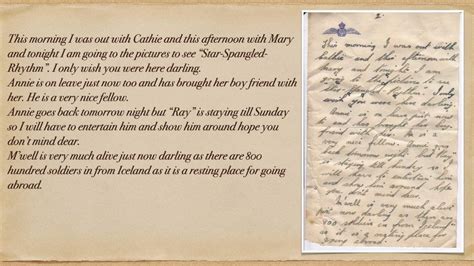 This morning I was out with Cathie and this afternoon with Mary
and tonight I am going to the pictures to see “Star-Spangled-
Rhythm”. I only wish you were here darling.
Annie is on leave just now too and has brought her boy friend with
her. He is a very nice fellow.
Annie goes back tomorrow night but “Ray” is staying till Sunday
so I will have to entertain him and show him around hope you
don't mind dear.
M'well is very much alive just now darling as there are 800
hundred soldiers in from Iceland as it is a resting place for going
abroad.
2.
This morning I was out with
Cathie and this afternoon with
Mary and tonight I am
going to the pictures to see
I only wish
you were here darling.
Annie is on leave just
now too and has brought
her boy friend with
her. He is a very
nice fellow. Annie
goes back tomorrow
night but "Ray" is
staying till Sunday so
I will have to entertain
him and show him
around hope you
don't mind dear.
M'well is very much alive
just now darling as there are
800 soldiers in from Iceland
as it is a resting place for
going abroad.